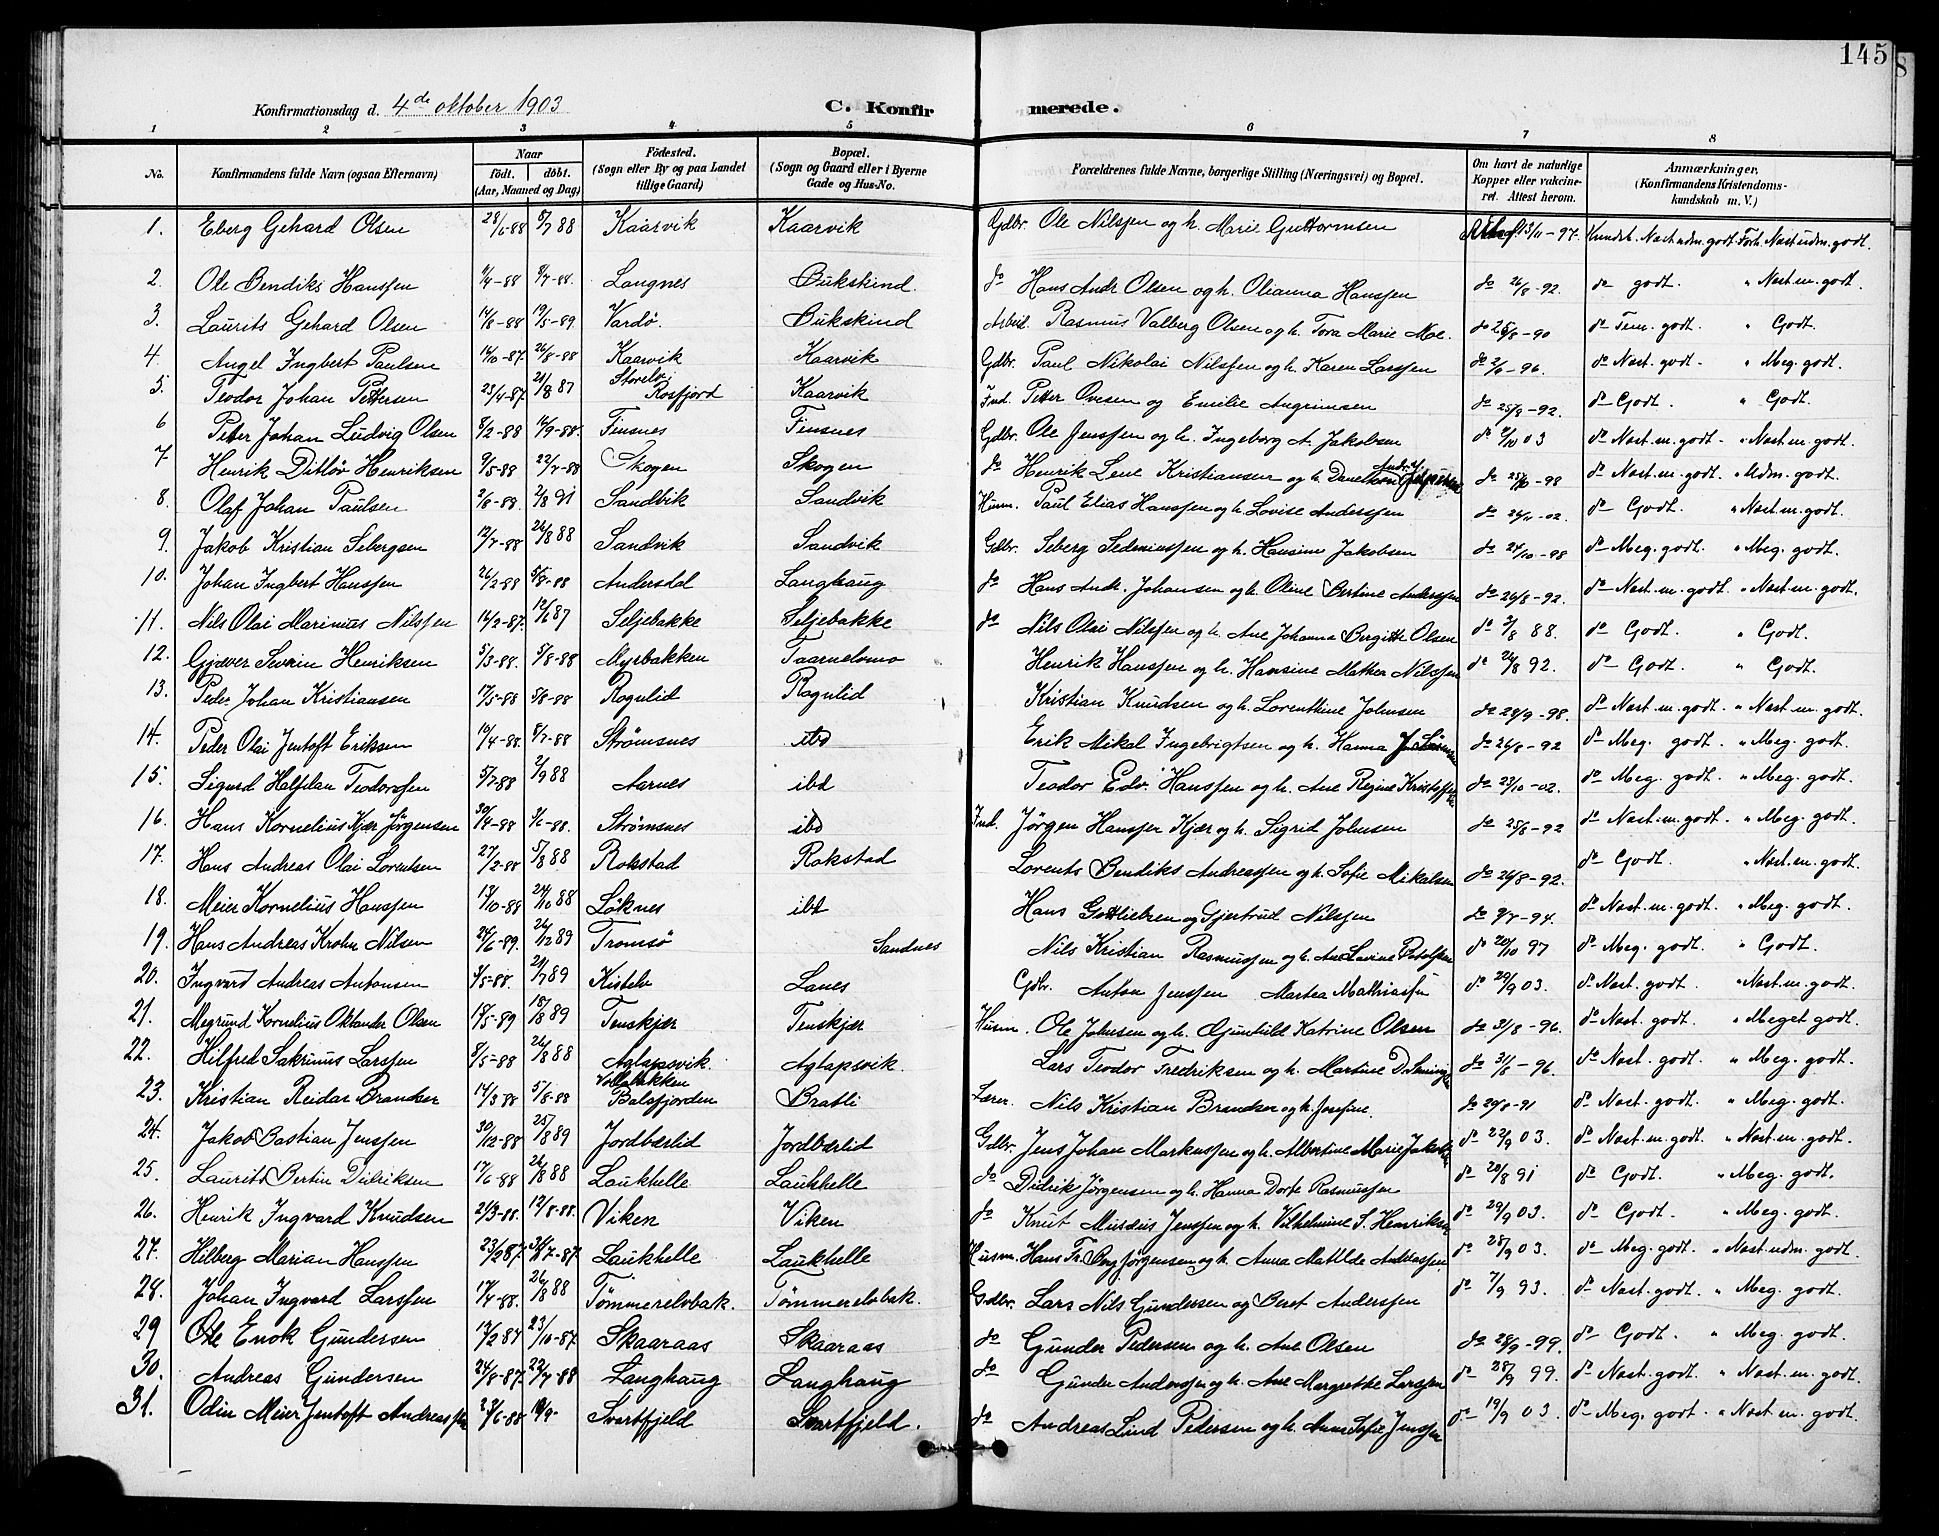 145
Konfirmationsdag d. 4de oktober 1903
C. Konfirmerede.
1 2 3 4 5 6 7 8
No. Konfirmandens fulde Navn (ogsaa Efternavn) Naar födt. döbt. (Aar, Maaned og Dag) Födested. (Sogn eller By og paa Landet tillige Gaard) Bopæl. (Sogn og Gaard eller i Byerne Gade og Hus-No. Forældrenes fulde Navne, borgerlige Stilling (Næringsvei) og Bopæl. Om havt de naturlige Kopper eller vakcineret. Attest herom. Anmærkninger. (Konfirmandens Kristendomskundskab m. V.)
1. Eberg Gehard Olsen 28/6-88 8/7 88 Kaarvik Kaarvik Gdbr. Ole Nilssen og h. Marie Guttormsen 13/11-97. Kundsk. Nost udm. godt Forh. Nost udm. godt.
2. Ole Bendiks Hanssen 8/7-88. Langnes Bukskind. do Hans Andr. Olsen og h. Olianna Hanssen do 26/8-92. do godt. " Nost. m. godt.
3. Laurits Gehard Olsen 14/8-88 19/5-89 Vardö. Bukskind Arbeid. Rasmus Valberg Olsen og h. Tora Marie Moe. do 25/8-90 do Tem. godt. " Godt.
4. Angel Ingbert Paulsen 14/10-87. 26/8-88 Kaarvik Kaarvik Gdbr. Paul Nikolai Nilssen og h. Karen Larssen do 2/6-96. do Nost. godt. " Meg. godt.
5. Teodor Johan Pettersen 23/4-87. 21/8 87 Storelv, Rosfjord Kaarvik Ind. Petter Ovesen og Emilie Angrimsen do 25/8-92. do Godt. " Godt.
6 Peter Johan Ludvig Olsen 8/2-88 16/9-88. Finsnes Finsnes Gdbr. Ole Jenssen og h. Ingeborg A. Jakobsen do 03 do Nost. m. godt. " Nost. m. godt.
7. Henrik Ditlöv Henriksen 9/5-88 22/7-88 Skogen Skogen do Henrik Lene Kristiansen og h. do -98 do Nost. m. godt. " Udm. godt.
8. Olaf Johan Paulsen 2/8-88. 2/8 91 Sandvik Sandvik Husm. Paul Elias Hanssen og h. Lovise Anderssen do 26/11-02. do Godt. " Nost. m. godt.
9. Jakob Kristian Sebergsen 12/7-88 26/8 88 Sandvik Sandvik Gdbr. Seberg Sedeniussen og h. Hansine Jakobsen do 24/10-98 do Meg. godt. " Meg. godt.
10. Johan Ingbert Hanssen 26/2-88 5/8-88 Andersdal Langhaug do Hans Andr. Johansen og h. Oline Bertine Anderssen do 26/8-92. do Nost. m. godt. " Nost. m. godt.
11. Nils Olai Marinius Nilssen 16/2-87. 12/6 87 Seljebakke Seljebakke do Nils Olai Nilssen og h. Ane Johanna Birgitte Olsen do 3/8 88. do Godt. " Godt.
12. Gjæver Severin Henriksen 5/3-88. 5/8-88 Myrbakken Taarnelvmo Henrik Hanssen og h. Hansine Mathea Nilssen do 26/8 92. do Godt. " Godt.
13. Peder Johan Kristiansen 17/5-88 5/8-88 Rognlid Rognlid Kristian Knudsen og h. Lorentine Johnsen do 28/9-98. do Nost. m. godt. " Nost. m. godt.
14. Peder Olai Jentoft Eriksen 10/4-88. 8/7-88 Strömsnes ibd Erik Mikal Ingebrigtsen og h. Hanna do 26/8-92 do Meg. godt. " Meg. godt.
15. Sigurd Halfdan Teodorssen 5/7-88 2/9 88 Aarnes ibd Teodor Edv. Hanssen og h. Ane Regine do 23/10-02. do Meg. godt. " Meg. godt.
16. Hans Kornelius Kjær Jörgensen 30/4-88 3/6-88. Strömsnes ibd Ind. Jörgen Hanssen Kjær og h. Sigrid Johnsen do 25/8-92 do Nost. m. godt. " Meg. godt.
17. Hans Andreas Olai Lorentsen 27/2-88 5/8 88 Rokstad Rokstad Lorents Bendiks Andreassen og h. Sofie Mikalsen do 26/8-92. do Godt. " Nost. m. godt.
18. Meier Kornelius Hanssen 13/10-88 24/10 88 Löknes ibd Hans Gottliebsen og Gjertrud Nilssen do 9/7-94. do Nost. m. godt. " Meg. godt.
19. Hans Andreas Krohn Nilsen 24/6-89. 26/12 89 Tromsö Sandnes Nils Kristian Rasmussen og h. do 20/10 97 do Meg. godt. " Godt.
20. Ingvard Andreas Antonsen 3/5-88. 21/7 89 Kistelv Lanes Gdbr. Anton Jenssen Martea Mathiassen do 29/9 03. do Nost. godt. " Nost. m. godt.
21. Megrund Kornelius Oktander Olsen 18/5-89 18/8 89 Tenskjær Tenskjær Husm. Ole Johnsen og h. Gunhild Katrine Olsen do 31/8-96. do Nost. godt. " Meget godt.
22. Hilfred Sakrinus Larssen 8/5-88 26/8 88 Aglapsvik. Aglapsvik. Lars Teodor Fredriksen og h. Martine do 31/8-96. do Nost. godt. " Meg. godt.
23. Kristian Reidar Brandser 14/3 88 5/8-88 Vollabakken Balsfjorden Bratli Lærer. Nils Kristian Brandser og h. Josefine. do 29/8-91 do Nost. godt. " Meg. godt.
24. Jakob Bastian Jenssen 30/12-88 25/8 89 Jordbærlid Jordbærlid Gdbr. Jens Johan Markussen og h. Albertine Marie do 22/9 03. do Nost. m. godt. " Nost. m. godt.
25. Laurits Bertin Didriksen 17/6-88 26/8 88 Laukhelle Laukhelle do Didrik Jörgensen og h. Hanna Dorte Rasmussen do 20/8 91 do Godt. " Meg. godt.
26. Henrik Ingvard Knudsen 21/3-88. 12/8-88. Viken Viken do Knut Musæus Jenssen og h. Vilhelmine S. Henriksen do 29/9 03. do Godt. " Meg. godt.
27. Hilberg Marian Hanssen 23/2 87. 7-87. Laukhelle Laukhelle Husm. Hans Fr. Jörgensen og h. Anna Matilde Andreassen do 28/9 03. do Meg. godt. " Nost. udm. godt.
28. Johan Ingvard Larssen 17/4-88. 26/8 88 Tömmerelvbak. Tömmerelvbak. Gdbr. Lars Nils Gundersen og Beret Anderssen do 7/9 93. do Nost. godt. " Meg. godt.
29 Ole Enok Gundersen 19/2 87 23/10-87. Skaaraas Skaaraas do Gunder Pedersen og h. Ane Olsen do 28/9-99. do Godt. " Meg. godt.
30. Andreas Gundersen 24/8-87. 22/7-88 Langhaug Langhaug do Gunder Anderssen og h. Ane Margrethe Larssen do 28/9 99. do Nost. godt. " Nost. m. godt.
31. Odin Meier Jentoft Andreassen Svartfjeld Svartfjeld. do Andreas Lind Pedersen og h. Anne Sofie Jenssen do 19/9 03. do Meg. godt. " Nost. m. godt.